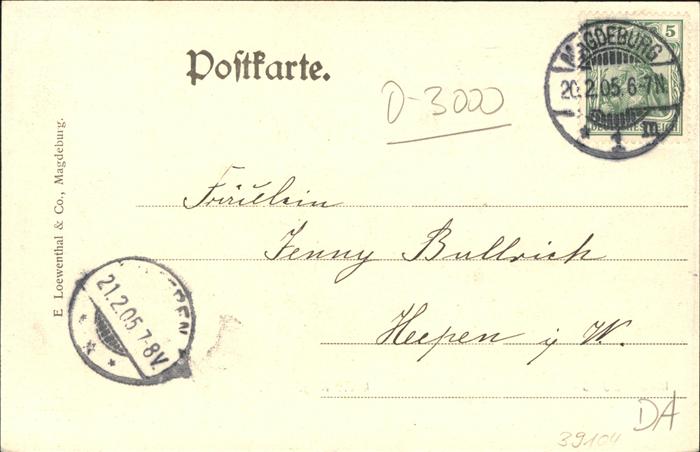 Postkarte.
D-3000
5
MAGDEBURG
20.2.05.6-7N.
* 1 m
DEUTSCHES REICH
Fräulein
Jenny Bullrich
Heepen i/W.
E. Loewenthal & Co., Magdeburg.
21.2.05 7-8V.
DA
39104